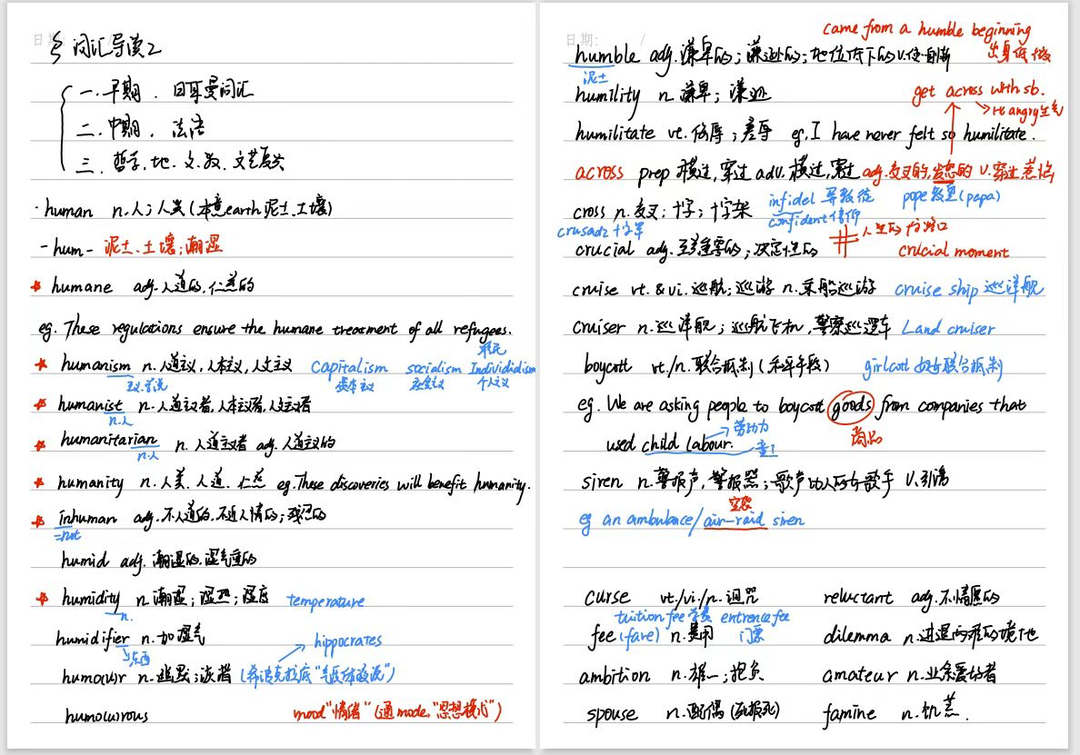 日期: /
§ 词汇导读2
一. 早期. 日耳曼词汇
二. 中期. 法语
三. 哲学.地.文.教.文艺复兴
·human n.人;人类(本意earth泥土.土壤)
-hum- 泥土.土壤;潮湿
humane adj.人道的.仁慈的
eg. These regulations ensure the humane treatment of all refugees.
难民
humanism n.人道主义,人本主义,人文主义 capitalism socialism Individidialism
主义.学说 资本主义 社会主义 个人主义
humanist n.人道主义者,人本主义者,人文主义者
n.人
humanitarian n.人道主义者 adj.人道主义的
n.人
humanity n.人类.人道.仁慈 eg.These discoveries will benefit humanity.
inhuman adj.不人道的.不近人情的;残忍的
=not
humid adj.潮湿的.湿气重的
humidity n.潮湿;湿热;湿度 temperature
n.
humidifier n.加湿气 hippocrates
东西
humo(u)r n.幽默;诙谐(希波克拉底“气质体液说”)
humo(u)rous mood“情绪”(通mode.“思想模式”)
日期: /
came from a humble beginning
humble adj.谦卑的;谦逊的;地位低下的 出身低微
泥土
humility n.谦卑;谦逊 get across with sb.
be angry生气
humilitate vt.侮辱;羞辱 eg.I have never felt so humilitate.
across prep 横过,穿过 adv.横过,穿过 adj.交叉的,发怒的 v.穿过
cross n.交叉;十字;十字架 infidel 异教徒 pope 教皇(papa)
crusadz 十字军 confident信仰
crucial adj.至关重要的;决定性的 人生的十字路口 crucial moment
cruise vt.&vi.巡航;巡游 n.乘船巡游 cruise ship 巡洋舰
cruiser n.巡洋舰;巡航飞机,警察巡逻车 Land cruiser
boycott vt./n.联合抵制(和平手段) girlcott 妇女联合抵制
eg. We are asking people to boycott goods from companies that
商品
used child labour. 劳动力
童工
siren n.警报声,警报器;歌声动人的女歌手 v.引诱
空袭
eg an ambulance/air-raid siren
curse vt./vi./n.诅咒 reluctant adj.不情愿的
tuition fee 学费 entrence fee
fee(fare) n.费用 门票 dilemma n.进退两难的境地
ambition n.雄心;抱负 amateur n.业余爱好者
spouse n.配偶 famine n.饥荒.